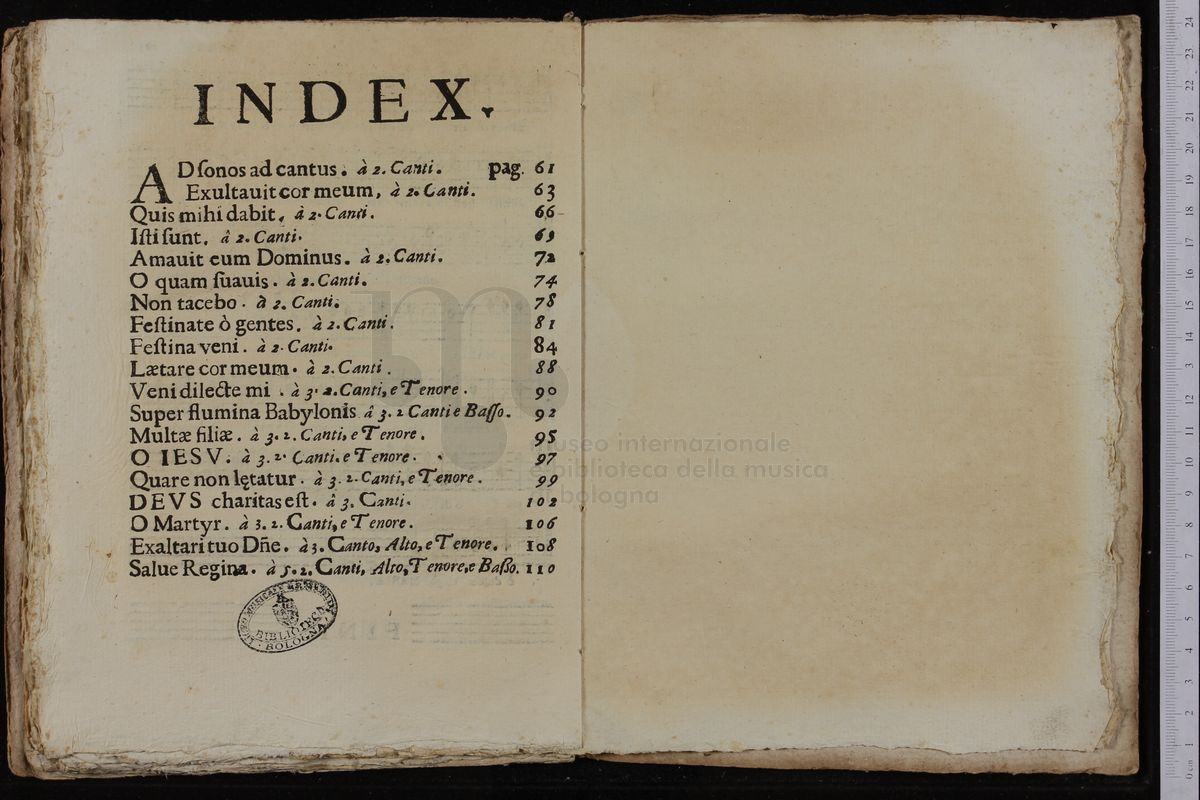 INDEX.
AD ſonos ad cantus. à 2. Canti. pag. 61
Exultauit cor meum, à 2. Canti. 63
Quis mihi dabit, à 2. Canti. 66
Iſti ſunt. â 2. Canti. 69
Amauit eum Dominus. à 2. Canti. 72
O quam ſuauis. à 2. Canti. 74
Non tacebo. à 2. Canti. 78
Feſtinate ò gentes. à 2. Canti. 81
Feſtina veni. à 2. Canti. 84
Lætare cor meum. à 2. Canti. 88
Veni dilecte mi. à 3. 2. Canti, e Tenore. 90
Super flumina Babylonis â 3. 2 Canti e Baſſo. 92
Multæ filiæ. à 3. 2. Canti, e Tenore. 95
O IESV. à 3. 2. Canti. e Tenore. 97
Quare non lętatur. à 3. 2. Canti, e Tenore. 99
DEVS charitas eſt. â 3. Canti. 102
O Martyr. à 3. 2. Canti, e Tenore. 106
Exaltari tuo Dñe. à 3. Canto, Alto, e Tenore. 108
Salue Regina. à 5. 2. Canti, Alto, Tenore, e Baſſo. 110
BIBLIOTECA
BOLOGNA
museo internazionale
e biblioteca della musica
di bologna